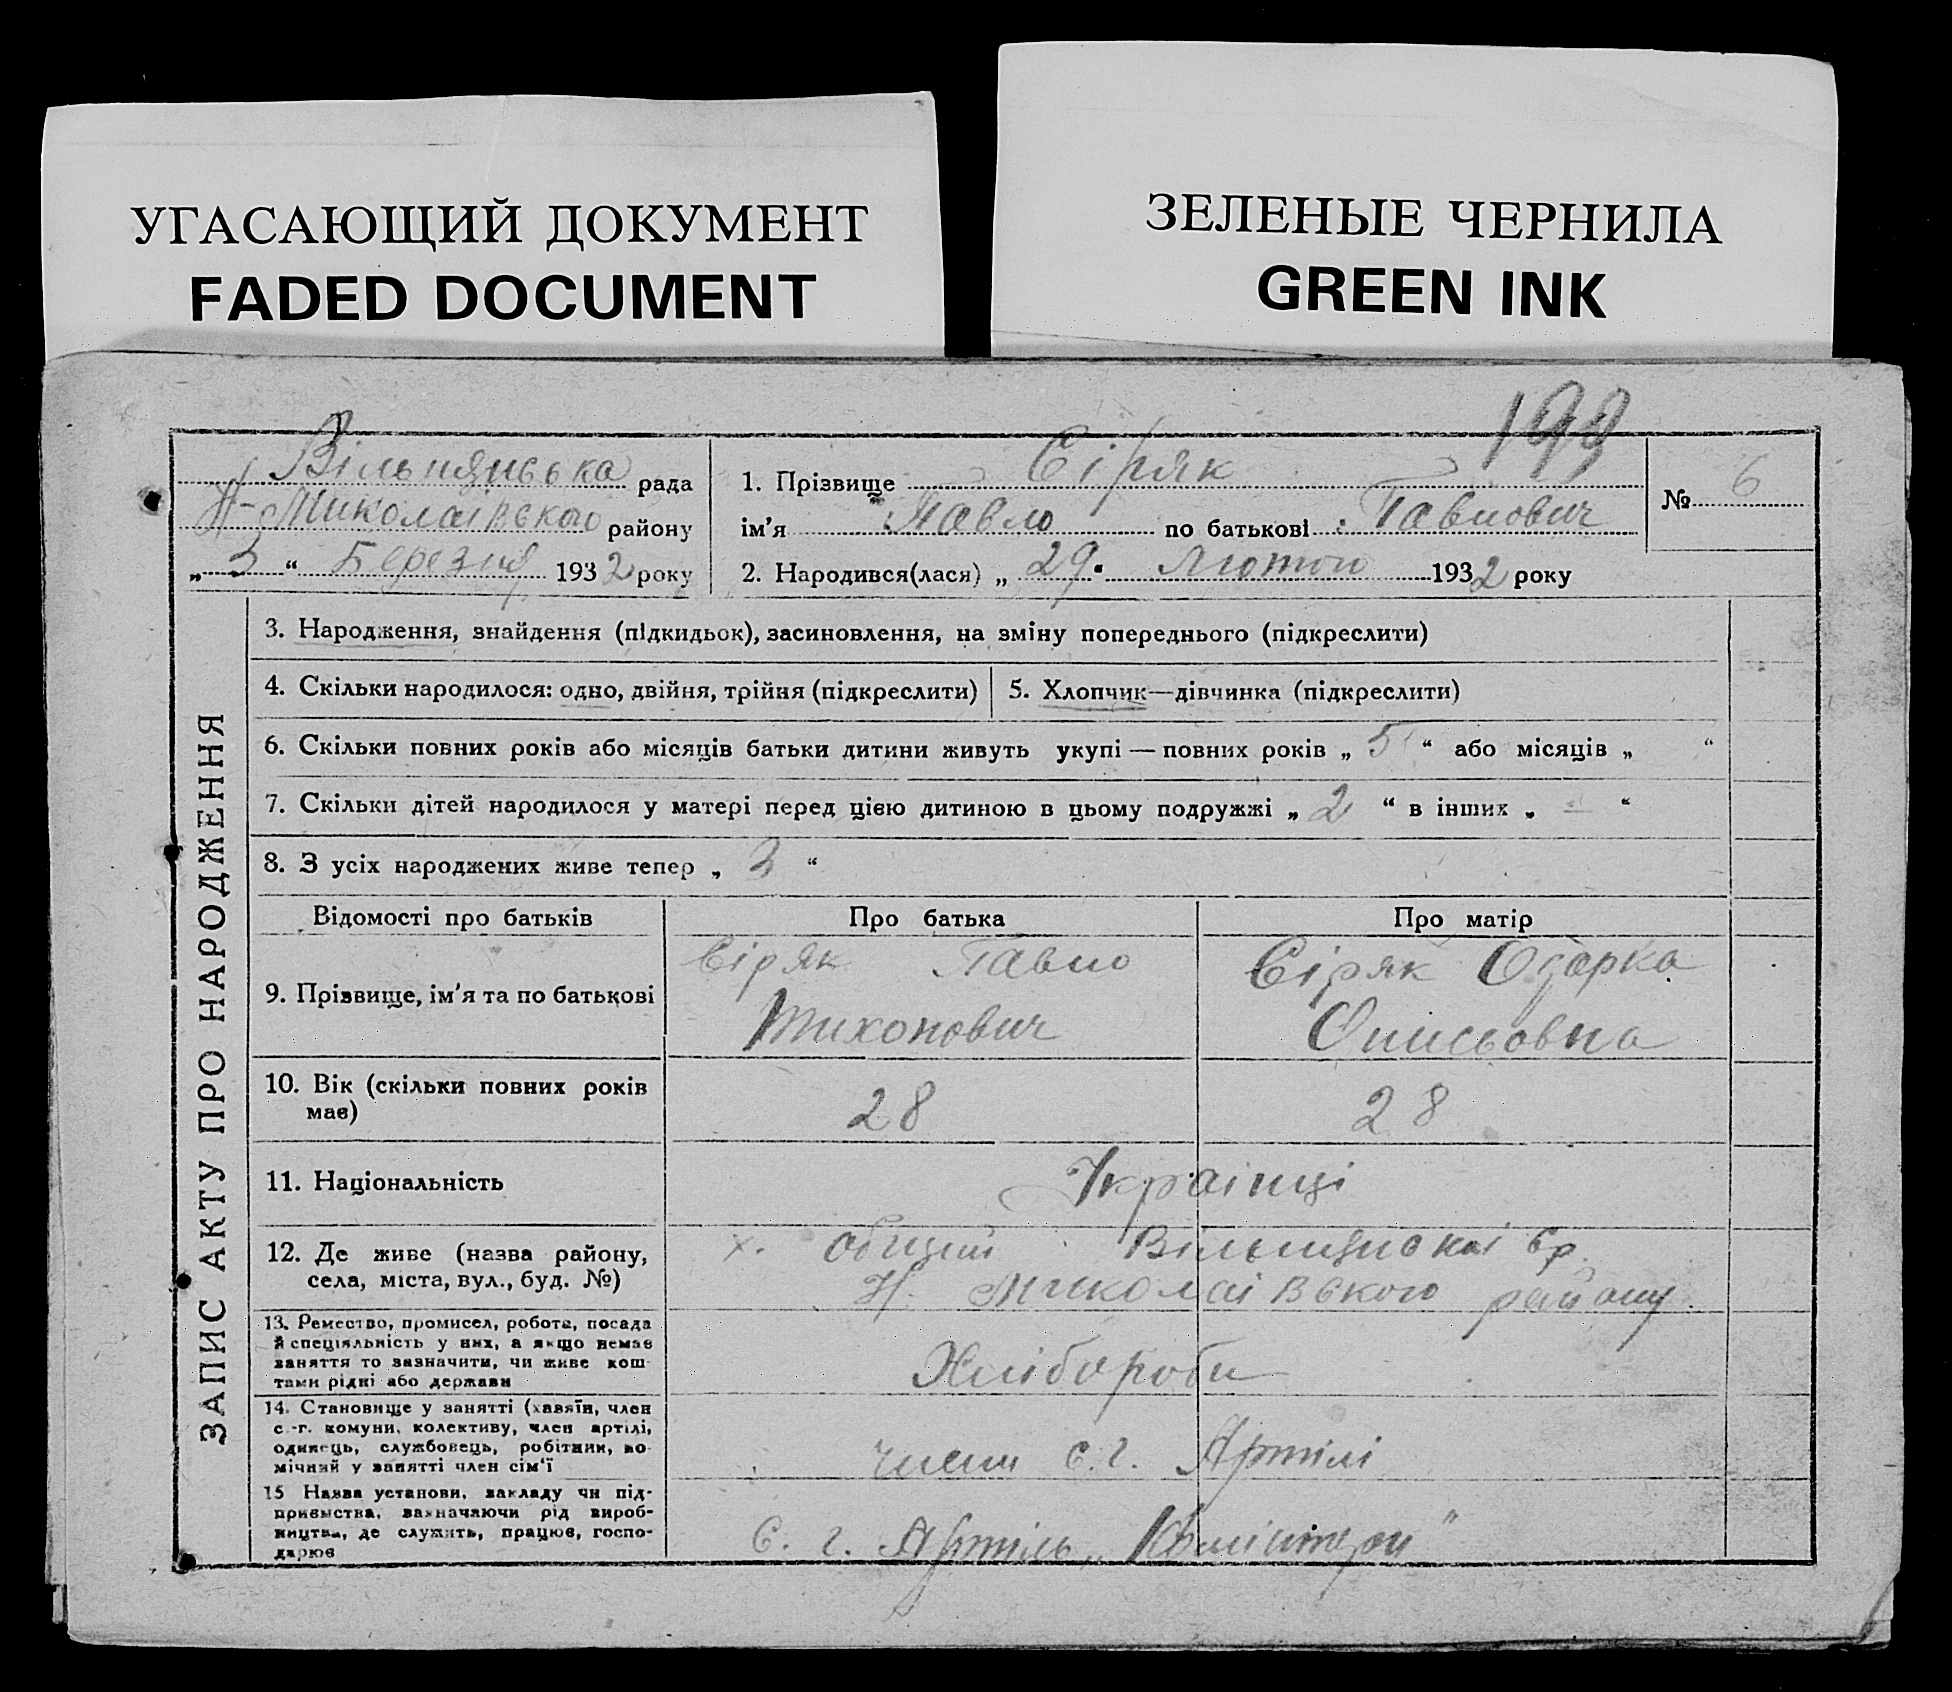 УГАСАЮЩИЙ ДОКУМЕНТ
FADED DOCUMENT
ЗЕЛЕНЫЕ ЧЕРНИЛА
GREEN INK
193
Вільнянська рада
Н-Миколаївского району
„ 3 “ Березня 1932 року
1. Прізвище Сіряк
ім'я Павло по батькові Павлович
2. Народився(лася) „ 29 “ Лютого 1932 року
№ 6
ЗАПИС АКТУ ПРО НАРОДЖЕННЯ
3. Народження, знайдення (підкидьок), засиновлення, на зміну попереднього (підкреслити)
4. Скільки народилося: одно, двійня, трійня (підкреслити)
5. Хлопчик—дівчинка (підкреслити)
6. Скільки повних років або місяців батьки дитини живуть укупі — повних років „ 5 “ або місяців „ “
7. Скільки дітей народилося у матері перед цією дитиною в цьому подружжі „ 2 “ в інших „ – “
8. З усіх народжених живе тепер „ 3 “
Відомості про батьків Про батька Про матір
9. Прізвище, ім'я та по батькові
Сіряк Павло
Тихонович
Сіряк Одарка
Онисьовна
10. Вік (скільки повних років
має)
28
28
11. Національність
Українці
12. Де живе (назва району,
села, міста, вул., буд. №)
х. Вільнянскої ср.
Н. Миколаївского району
13. Ремество, промисел, робота, посада
й спеціяльність у них, а якщо немає
заняття то зазначити, чи живе кош-
тами рідні або держави
Хлібороби
14. Становище у занятті (хазяїн, член
с.-г. комуни, колективу, член артілі,
одинець, службовець, робітник, по-
мічний у занятті член сім'ї
члени с.г. Артілі
15 Назва установи, закладу чи під-
приємства, зазначаючи рід вироб-
ництва, де служить, працює, госпо-
дарює
С. г. Артіль